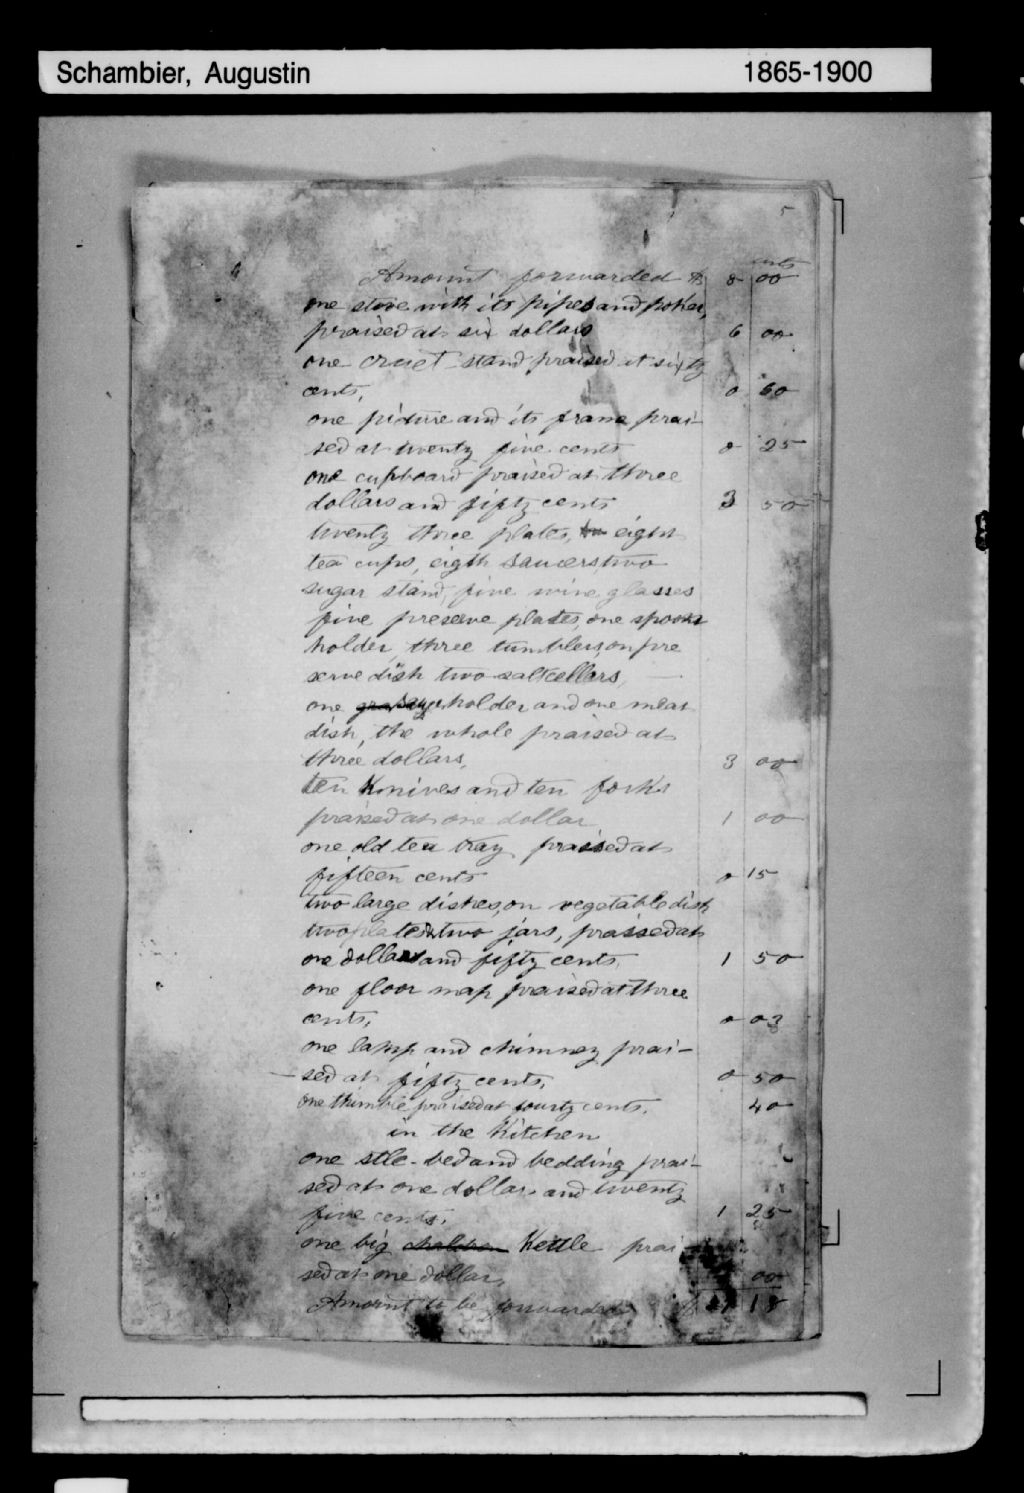 Schambier, Augustin 1865-1900
5
cents
Amount forwarded $ 8 00
one stove with its pipes and poker,
praised at six dollars 6 00
one cruet-stand praised at sixty
cents, 0 60
one picture and its frame prai-
sed at twenty five cents 0 25
one cupboard praised at three
dollars and fifty cents 3 50
twenty three plates, eight
tea cups, eigth saucers, two
sugar stand, five wine glasses
five preserve plates, one spoons
holder, three tumblers, on pre
serve dish two saltcellars,
one holder and one meat
dish, the whole praised at
three dollars, 3 00
ten Knives and ten forks
praised at one dollar 1 00
one old tea tray praised at
fifteen cents 0 15
two large dishes, on vegetable dish
two plates & two jars, praised at
one dollar and fifty cents 1 50
one floor map praised at three
cents, 0 03
one lamp and chimney prai-
sed at fifty cents, 0 50
one thimble praised at fourty cents. 40
in the Kitchen
one stle-bed and bedding prai-
sed at one dollar and twenty
five cents, 1 25
one big Kettle prai
sed at one dollar, 00
Amount to be forwarded $ 18